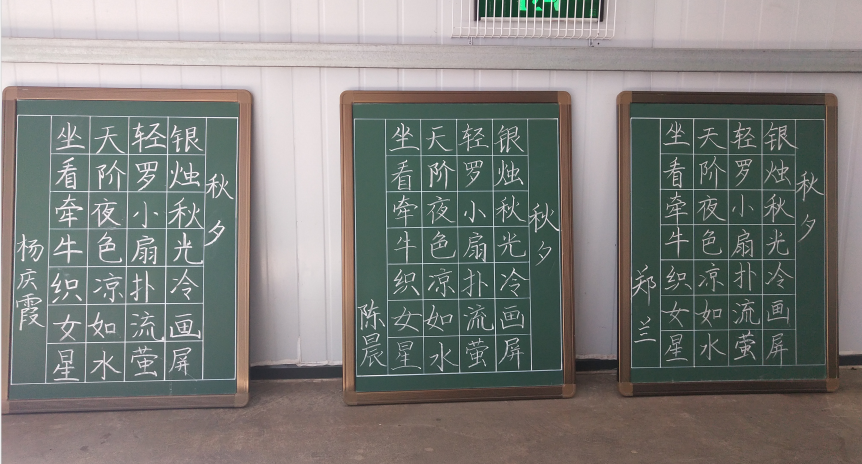 秋夕
银烛秋光冷画屏
轻罗小扇扑流萤
天阶夜色凉如水
坐看牵牛织女星
杨庆霞
秋夕
银烛秋光冷画屏
轻罗小扇扑流萤
天阶夜色凉如水
坐看牵牛织女星
陈晨
秋夕
银烛秋光冷画屏
轻罗小扇扑流萤
天阶夜色凉如水
坐看牵牛织女星
郑兰